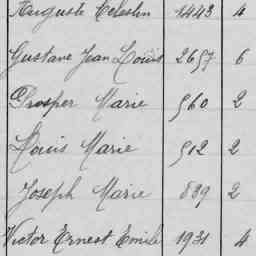 Auguste Celestin 1443 4
Gustave Jean Louis 2657 6
Prosper Marie 560 2
Louis Marie 512 2
Joseph Marie 839 2
Victor Ernest Emile 1931 4